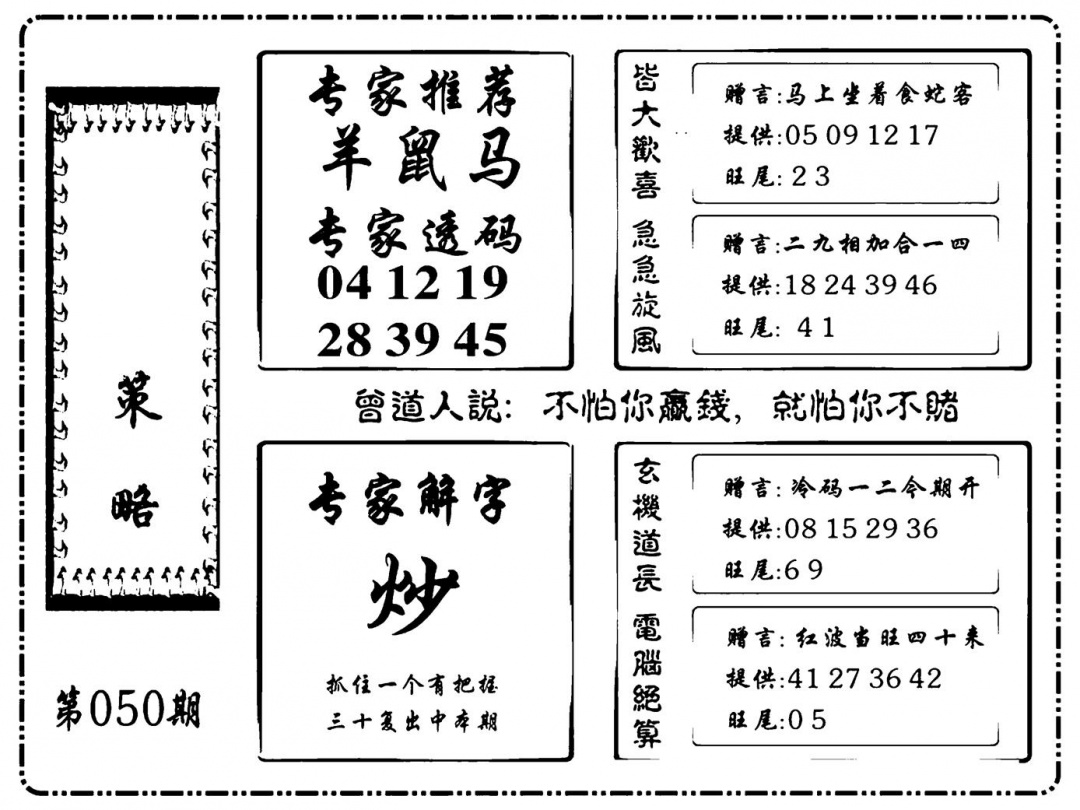 策略
第050期
专家推荐
羊鼠马
专家透码
04 12 19
28 39 45
皆大歡喜
赠言:马上坐着食蛇客
提供:05 09 12 17
旺尾: 2 3
急急旋風
赠言:二九相加合一四
提供:18 24 39 46
旺尾: 4 1
曾道人説: 不怕你贏錢, 就怕你不賭
专家解字
炒
抓住一个有把握
三十复出中本期
玄機道長
赠言: 冷码一二今期开
提供:08 15 29 36
旺尾:6 9
電腦絕算
赠言: 红波当旺四十来
提供:41 27 36 42
旺尾:0 5